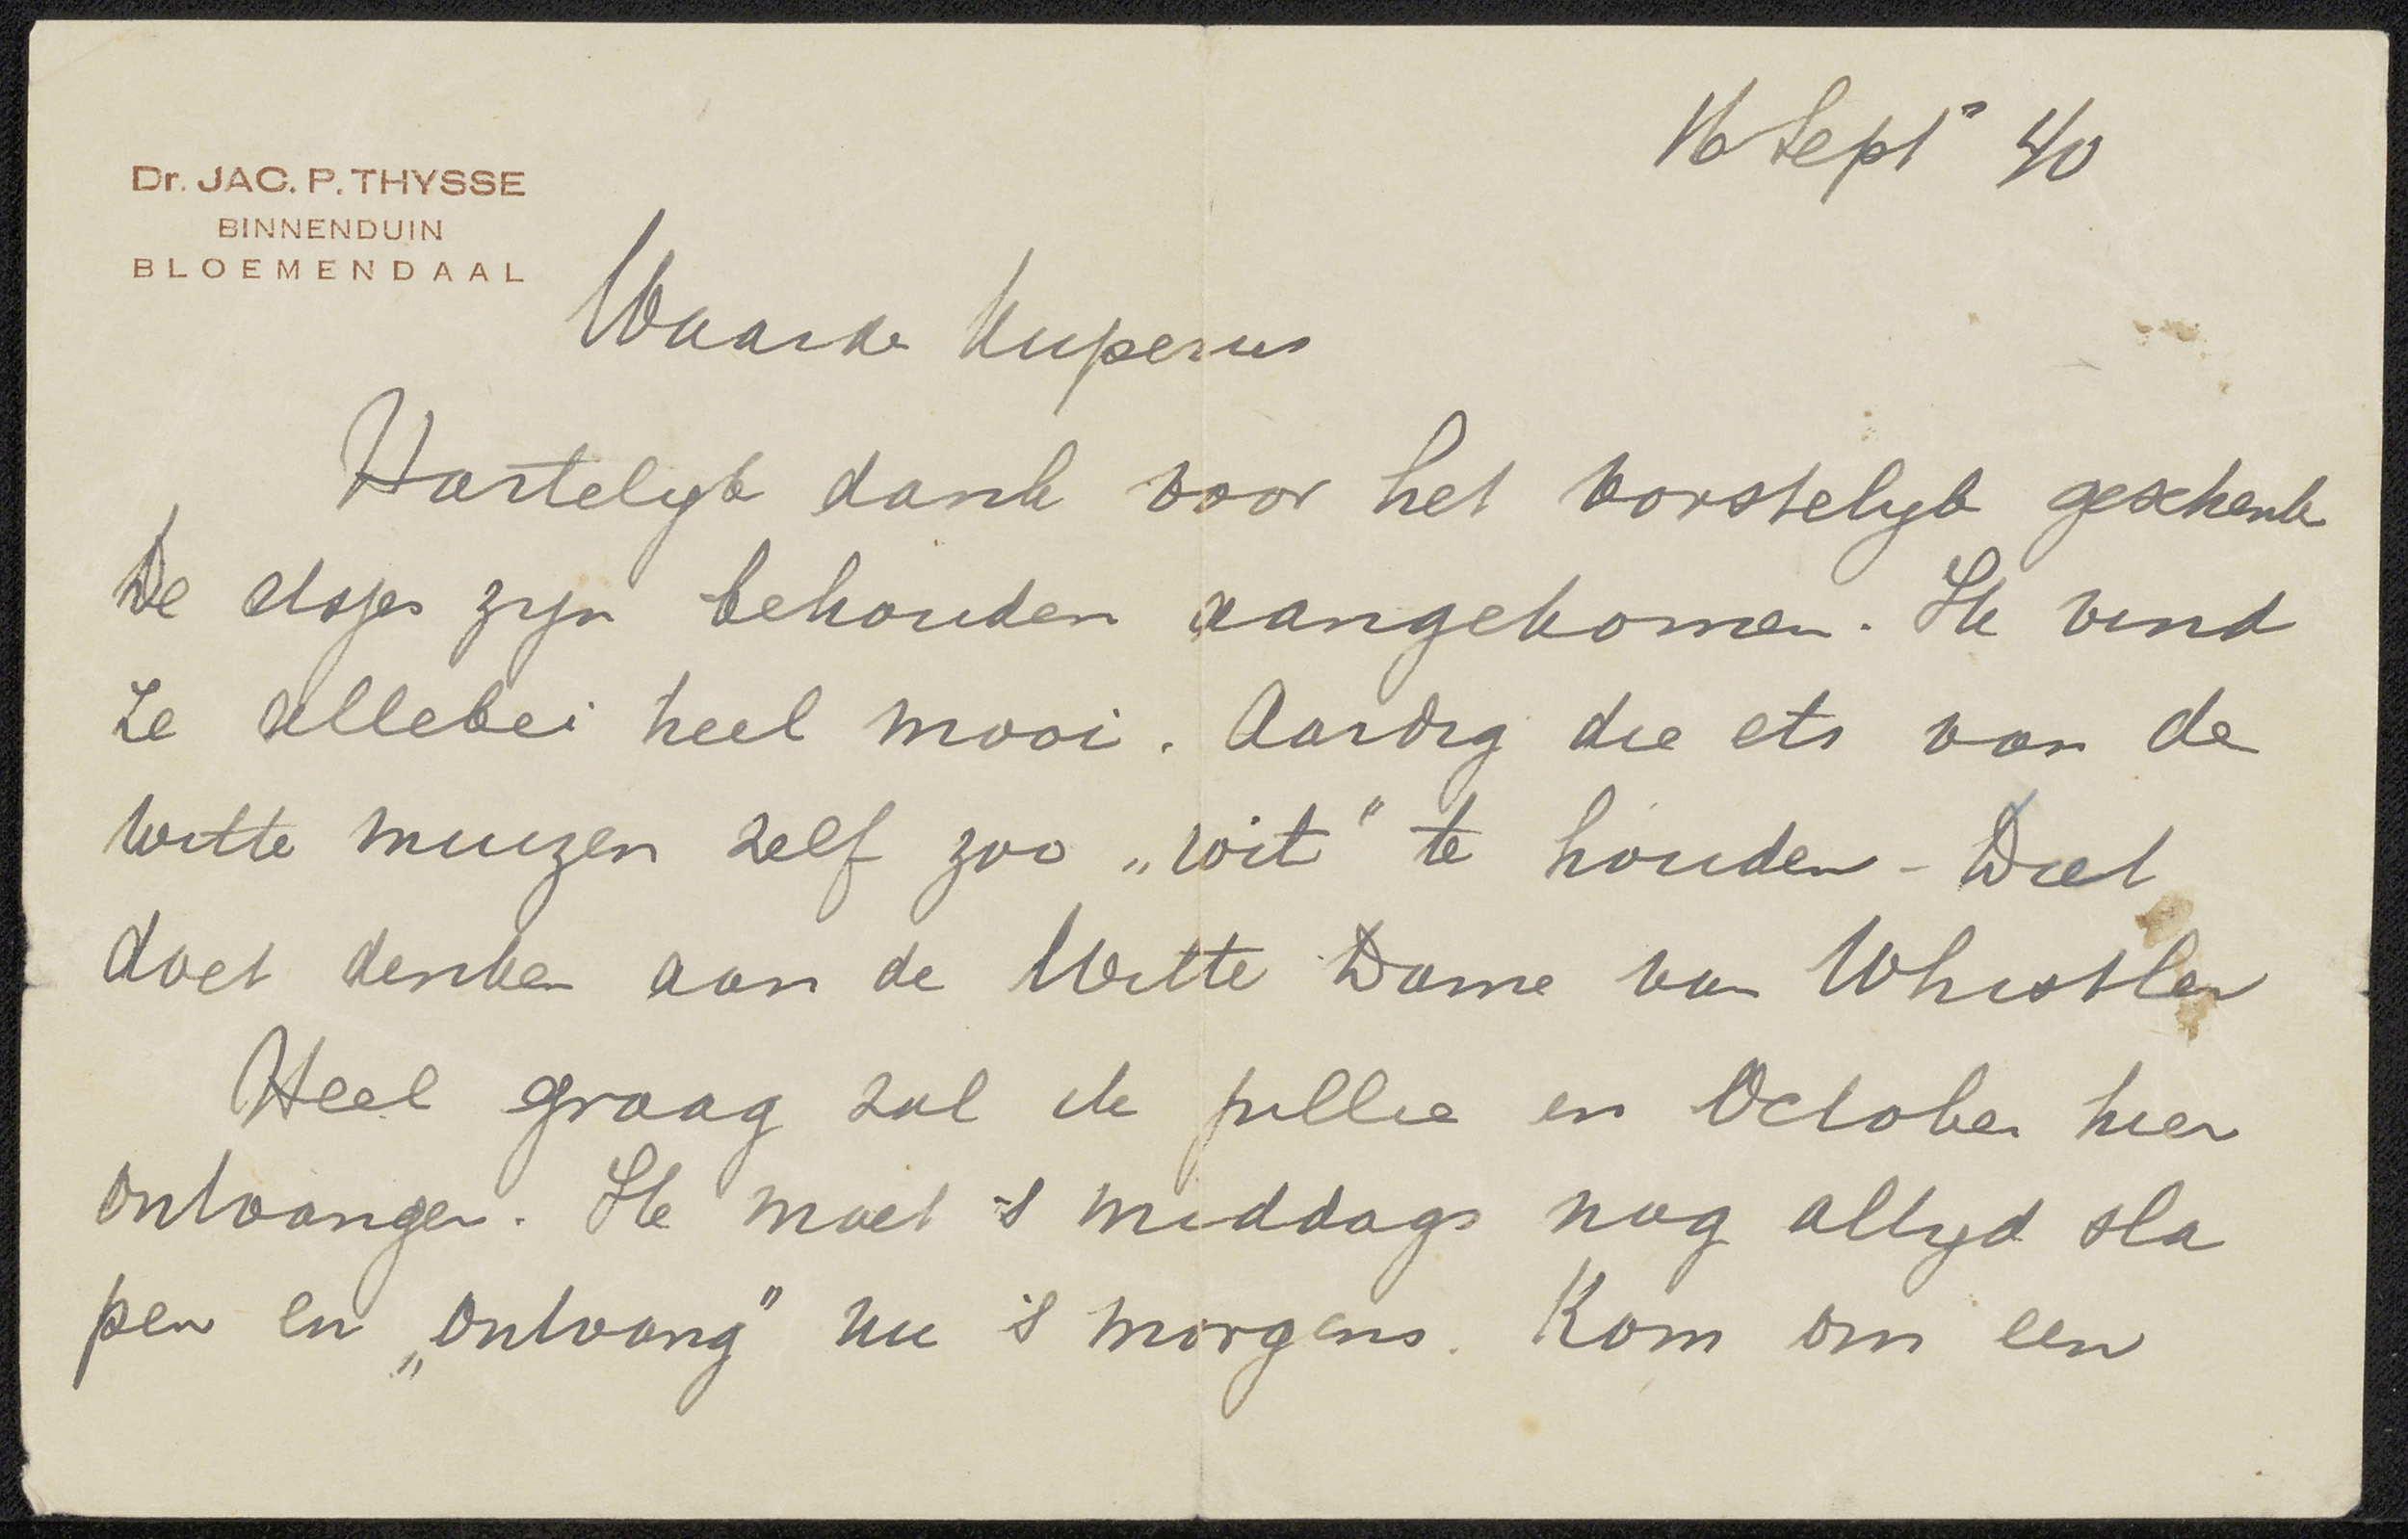 16 Sept 40
Dr. JAC. P. THYSSE
BINNENDUIN
BLOEMENDAAL
Waarde Kuperus
Hartelyk dank voor het vorstelyk geschenk
De etsjes zyn behouden aangekomen. Ik vind
ze allebei heel mooi. Aardig die ets van de
witte muizen zelf zoo „wit" te houden - Dat
doet denken aan de Witte Dame van Whistler
Heel graag zal ik jullie in October hier
ontvangen. Ik moet 's middags nog altyd sla
pen en „ontvang" nu 's morgens. Kom om een